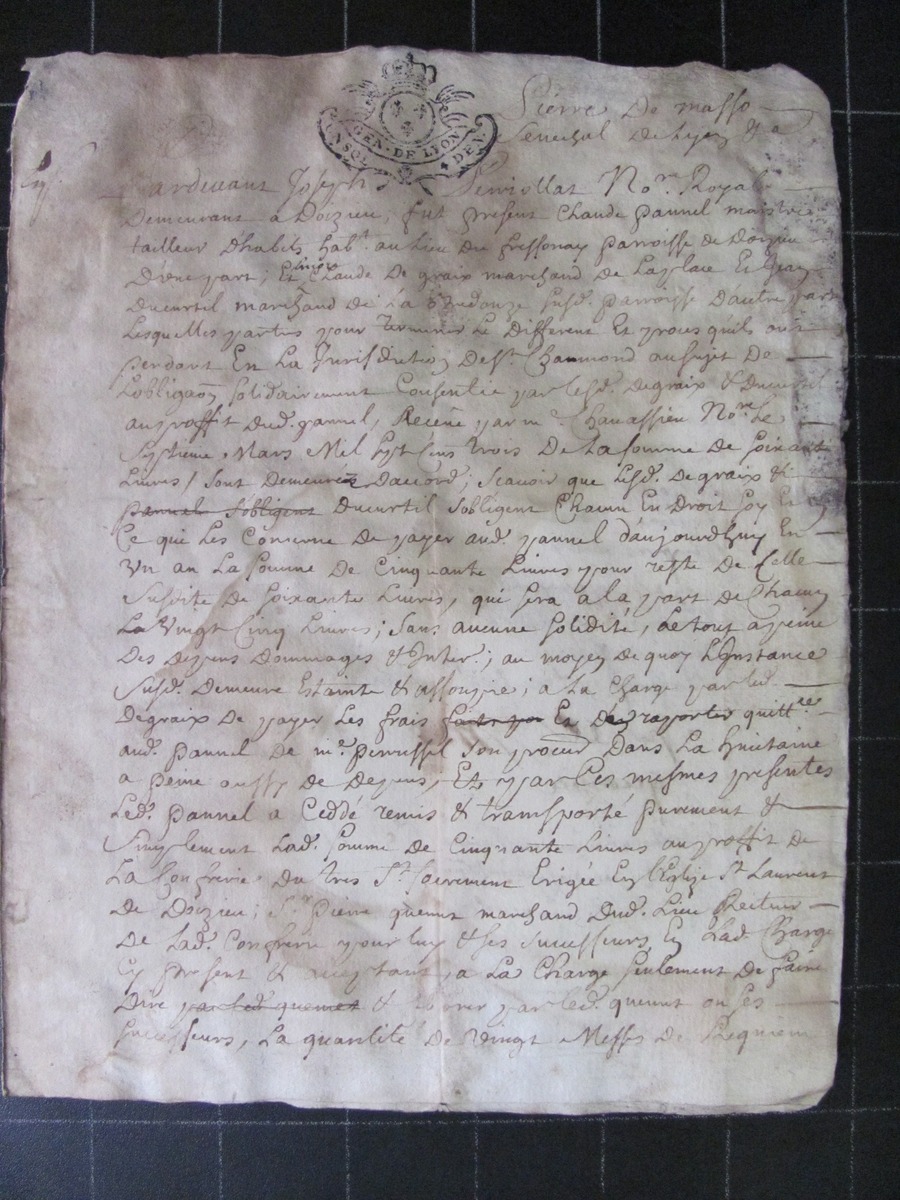 GEN · DE LYON
4 DEN.
Pierre De masso
Senechal de Lyon &a
Pardevant Joseph Perriollat Nore. Royal
Demeurant a Doizieu, fut present Claude pannel maistre
tailleur D'habits habt. au Lieu du fressonay parroisse de Doizieu
D'une part; Et Claude De graix marchand de Laplace Et Jean
Ducurtil marchand de La susd. parroisse D'autre part
Lesquelles parties pour terminer Le Different Et proces qu'ils ont
pendant En La Jurisdiction De St. Chaumond au sujet De
L'obligaon solidairement Consentie par lesd. Degraix & Ducurtil
au proffit Dud. pannel, Receüe par me. Chavassieu Nore. Le
Septieme Mars Mil sept Cens trois De La somme de soixante
Livres / sont Demeurées D'accord; scavoir que Lesd. Degraix &
pannel s'obligent Ducurtil s'obligent Chacun En Droit soy Et
Ce que Les Concerne De payer aud. pannel d'aujourdhuy En
Un an La somme De Cinquante Livres pour reste De Celle
Susdite De soixante Livres, qui sera a la part de Chacun
La Vingt Cinq Livres; sans aucune solidité, Le tout a peine
Des depens Dommages & Inter.; au moyen de quoy L'Instance
Susd. Demeure Estainte & assoupie; a La Charge par led.
Degraix De payer Les frais Et De rapporter quittce.
aud. pannel De me. perrussel son procur Dans La huictaine
a peine aussy de Depens, Et par Ces mesmes presentes
Led. pannel a Ceddé remis & transporté purement &
Simplement Lad. somme de Cinquante Livres au proffit de
La Confrerie Du tres St. sacrement Erigée En L'Eglize St. Laurent
De Doizieu; Sr. pierre quemet marchand Dud. Lieu Recteur
De Lad. Confrerie pour luy & ses successeurs En Lad. Charge
Cy present & acceptant, a La Charge seulement De faire
Dire par led. quemet & par led. quemet ou ses
successeurs, La quantité De Vingt Messes De Requiem